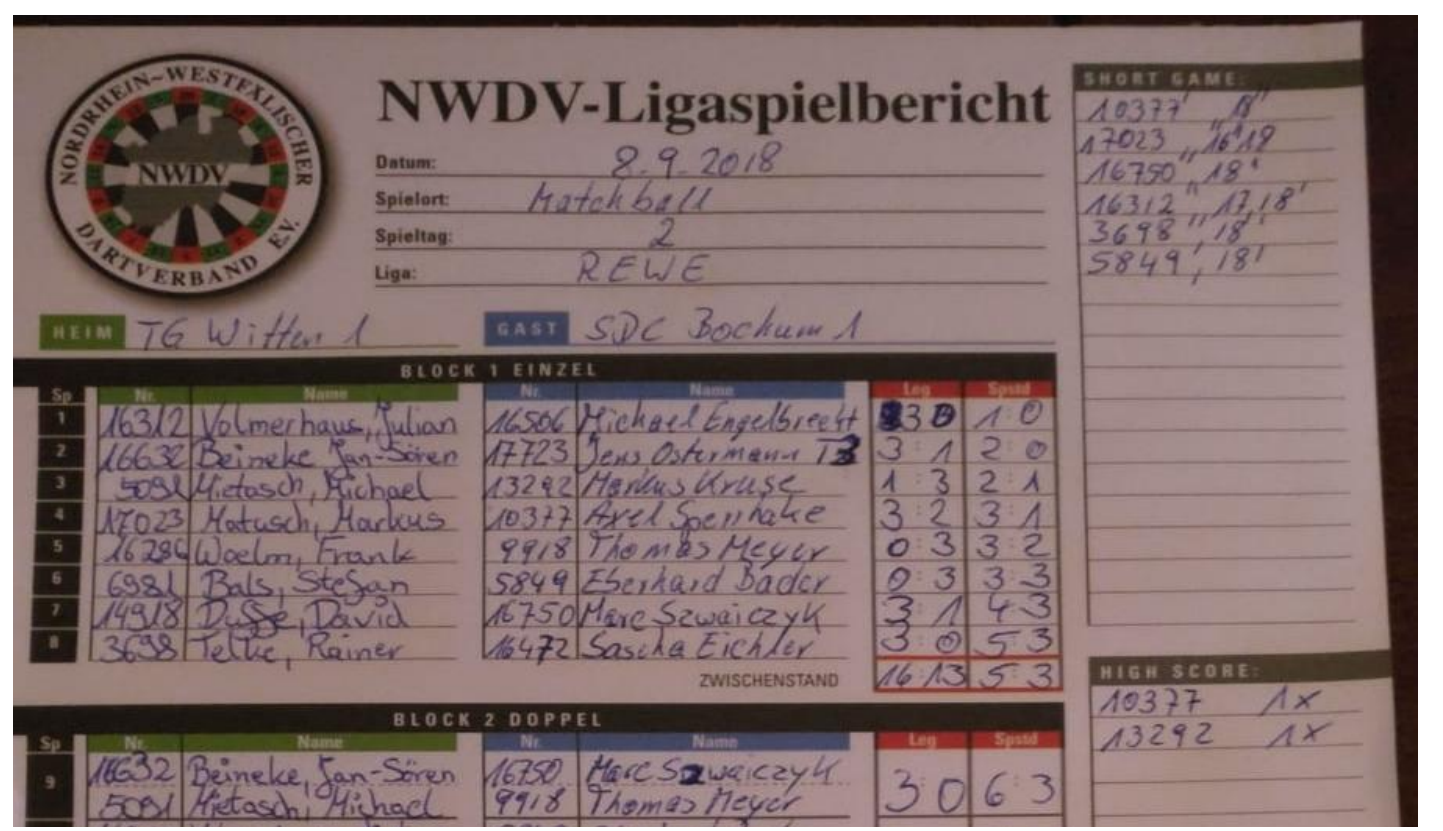 NORDRHEIN-WESTFÄLISCHER
NWDV
DARTVERBAND E.V.
NWDV-Ligaspielbericht
Datum: 8.9.2018
Spielort: Matchball
Spieltag: 2
Liga: REWE
HEIM TG Witten 1 GAST SDC Bochum 1
BLOCK 1 EINZEL
Sp Nr. Name Nr. Name Leg Spstd
1 16312 Volmerhaus, Julian 16506 Michael Engelbrecht 3 0 1:0
2 16632 Beineke Jan-Sören 17723 Jens Ostermann 3:1 2:0
3 5091 Mietasch, Michael 13292 Markus Kruse 1:3 2:1
4 17023 Matusch, Markus 10377 Axel 3:2 3:1
5 16286 Woelm, Frank 9918 Thomas Meyer 0:3 3:2
6 6981 Bals, Stefan 5849 Eberhard Bader 0:3 3:3
7 14918 David 16750 Marc Szwaiczyk 3:1 4:3
8 3698 Telke, Rainer 16472 Sascha Eichler 3:0 5:3
ZWISCHENSTAND 16:13 5:3
BLOCK 2 DOPPEL
Sp Nr. Name Nr. Name Leg Spstd
9 16632 Beineke, Jan-Sören 16750 Marc Szwaiczyk 3:0 6:3
5091 Mietasch, Michael 9918 Thomas Meyer
SHORT GAME:
10377', 18"
17023 ,, 16'18
16750 ', 18'
16312 ", 17,18'
3698 ", 18"
5849', 18'
HIGH SCORE:
10377 1x
13292 1x